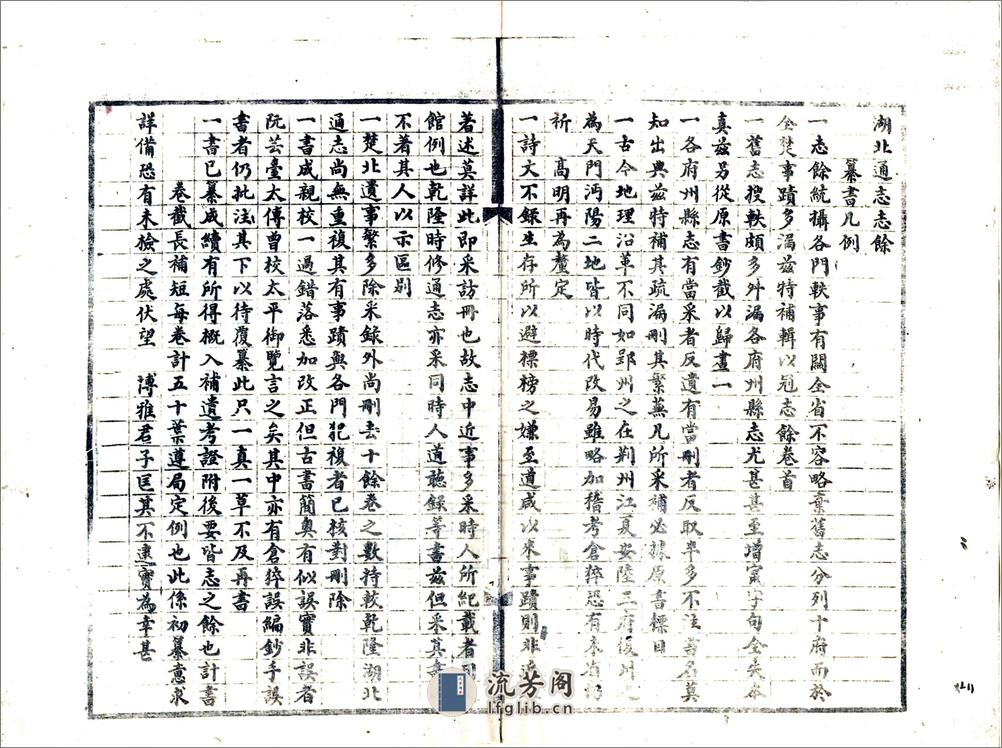 湖北通志志餘
纂書凡例
一志餘統攝各門軼事有關全省不容略棄舊志分列十府而於
全楚事蹟多漏茲特補輯以冠志餘卷首
一舊志搜軼頗多外漏各府州縣志尤甚甚至增竄字句全失本
真茲另從原書鈔截以歸畫一
一各府州縣志有當采者反遺有當刪者反取半多不注書名莫
知出典茲特補其疏漏刪其繁蕪凡所采補必據原書標目
一古今地理沿革不同如郢州之在荆州江夏安陸三府復州之
為天門沔陽二地皆以時代改易雖略加稽考倉猝恐有未
祈 高明再為釐定
一詩文不錄生存所以避標榜之嫌至道咸以來事蹟則非近
著述莫詳此即采訪冊也故志中近事多采時人所紀載者
館例也乾隆時修通志亦采同時人道聽錄等書茲但采其事
不著其人以示區別
一楚北遺事繁多除采錄外尚刪去十餘卷之數持較乾隆湖北
通志尚無重複其有事蹟與各門犯複者已核對刪除
一書成親校一過錯落悉加改正但古書簡奧有似誤實非誤者
阮芸臺太傅曾校太平御覽言之矣其中亦有倉猝誤編鈔手誤
書者仍批注其下以待覆纂此只一真一草不及再書
一書已纂成續有所得概入補遺考證附後要皆志之餘也計書
卷截長補短每卷計五十葉遵局定例也此係初纂意求
詳備恐有未檢之處伏望 博雅君子匡其不逮實為幸甚
流芳阁
lfglib.cn